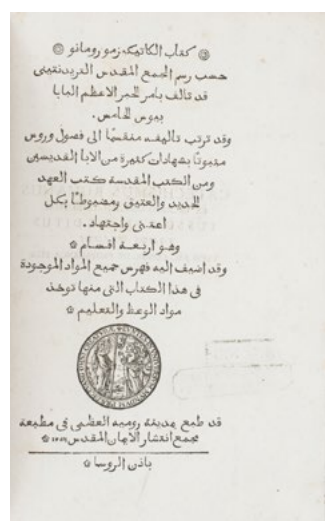 كتاب الكاتيكزمو رومانو
حسب رسم المجمع المقدس التريدنتيني
قد تالف بامر الحبر الاعظم البابا
بيوس الخامس.
وقد ترتب تاليفه منقسمًا الى فصول وروس
مثبوتًا بشهادات كثيرة من الابا القديسين
ومن الكتب المقدسة كتب العهد
الجديد والعتيق ومضبوطًا بكل
اعتنى واجتهاد.
وهو اربعة اقسام
وقد اضيف اليه فهرس جميع المواد الموجودة
في هذا الكتاب التي منها توخذ
مواد الوعظ والتعليم
قد طبع بمدينة روميه العظمى في مطبعة
مجمع انتشار الايمان المقدس
باذن الروسا